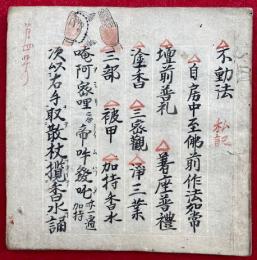 不動法 私記
自房中至佛前作法如常
壇前普礼 着座普禮
塗香 三密觀 淨三業
三部 被甲 加持香水
唵阿蜜哩二合帝吽發吒 遍 加持
次以右手取散杖攪香水誦